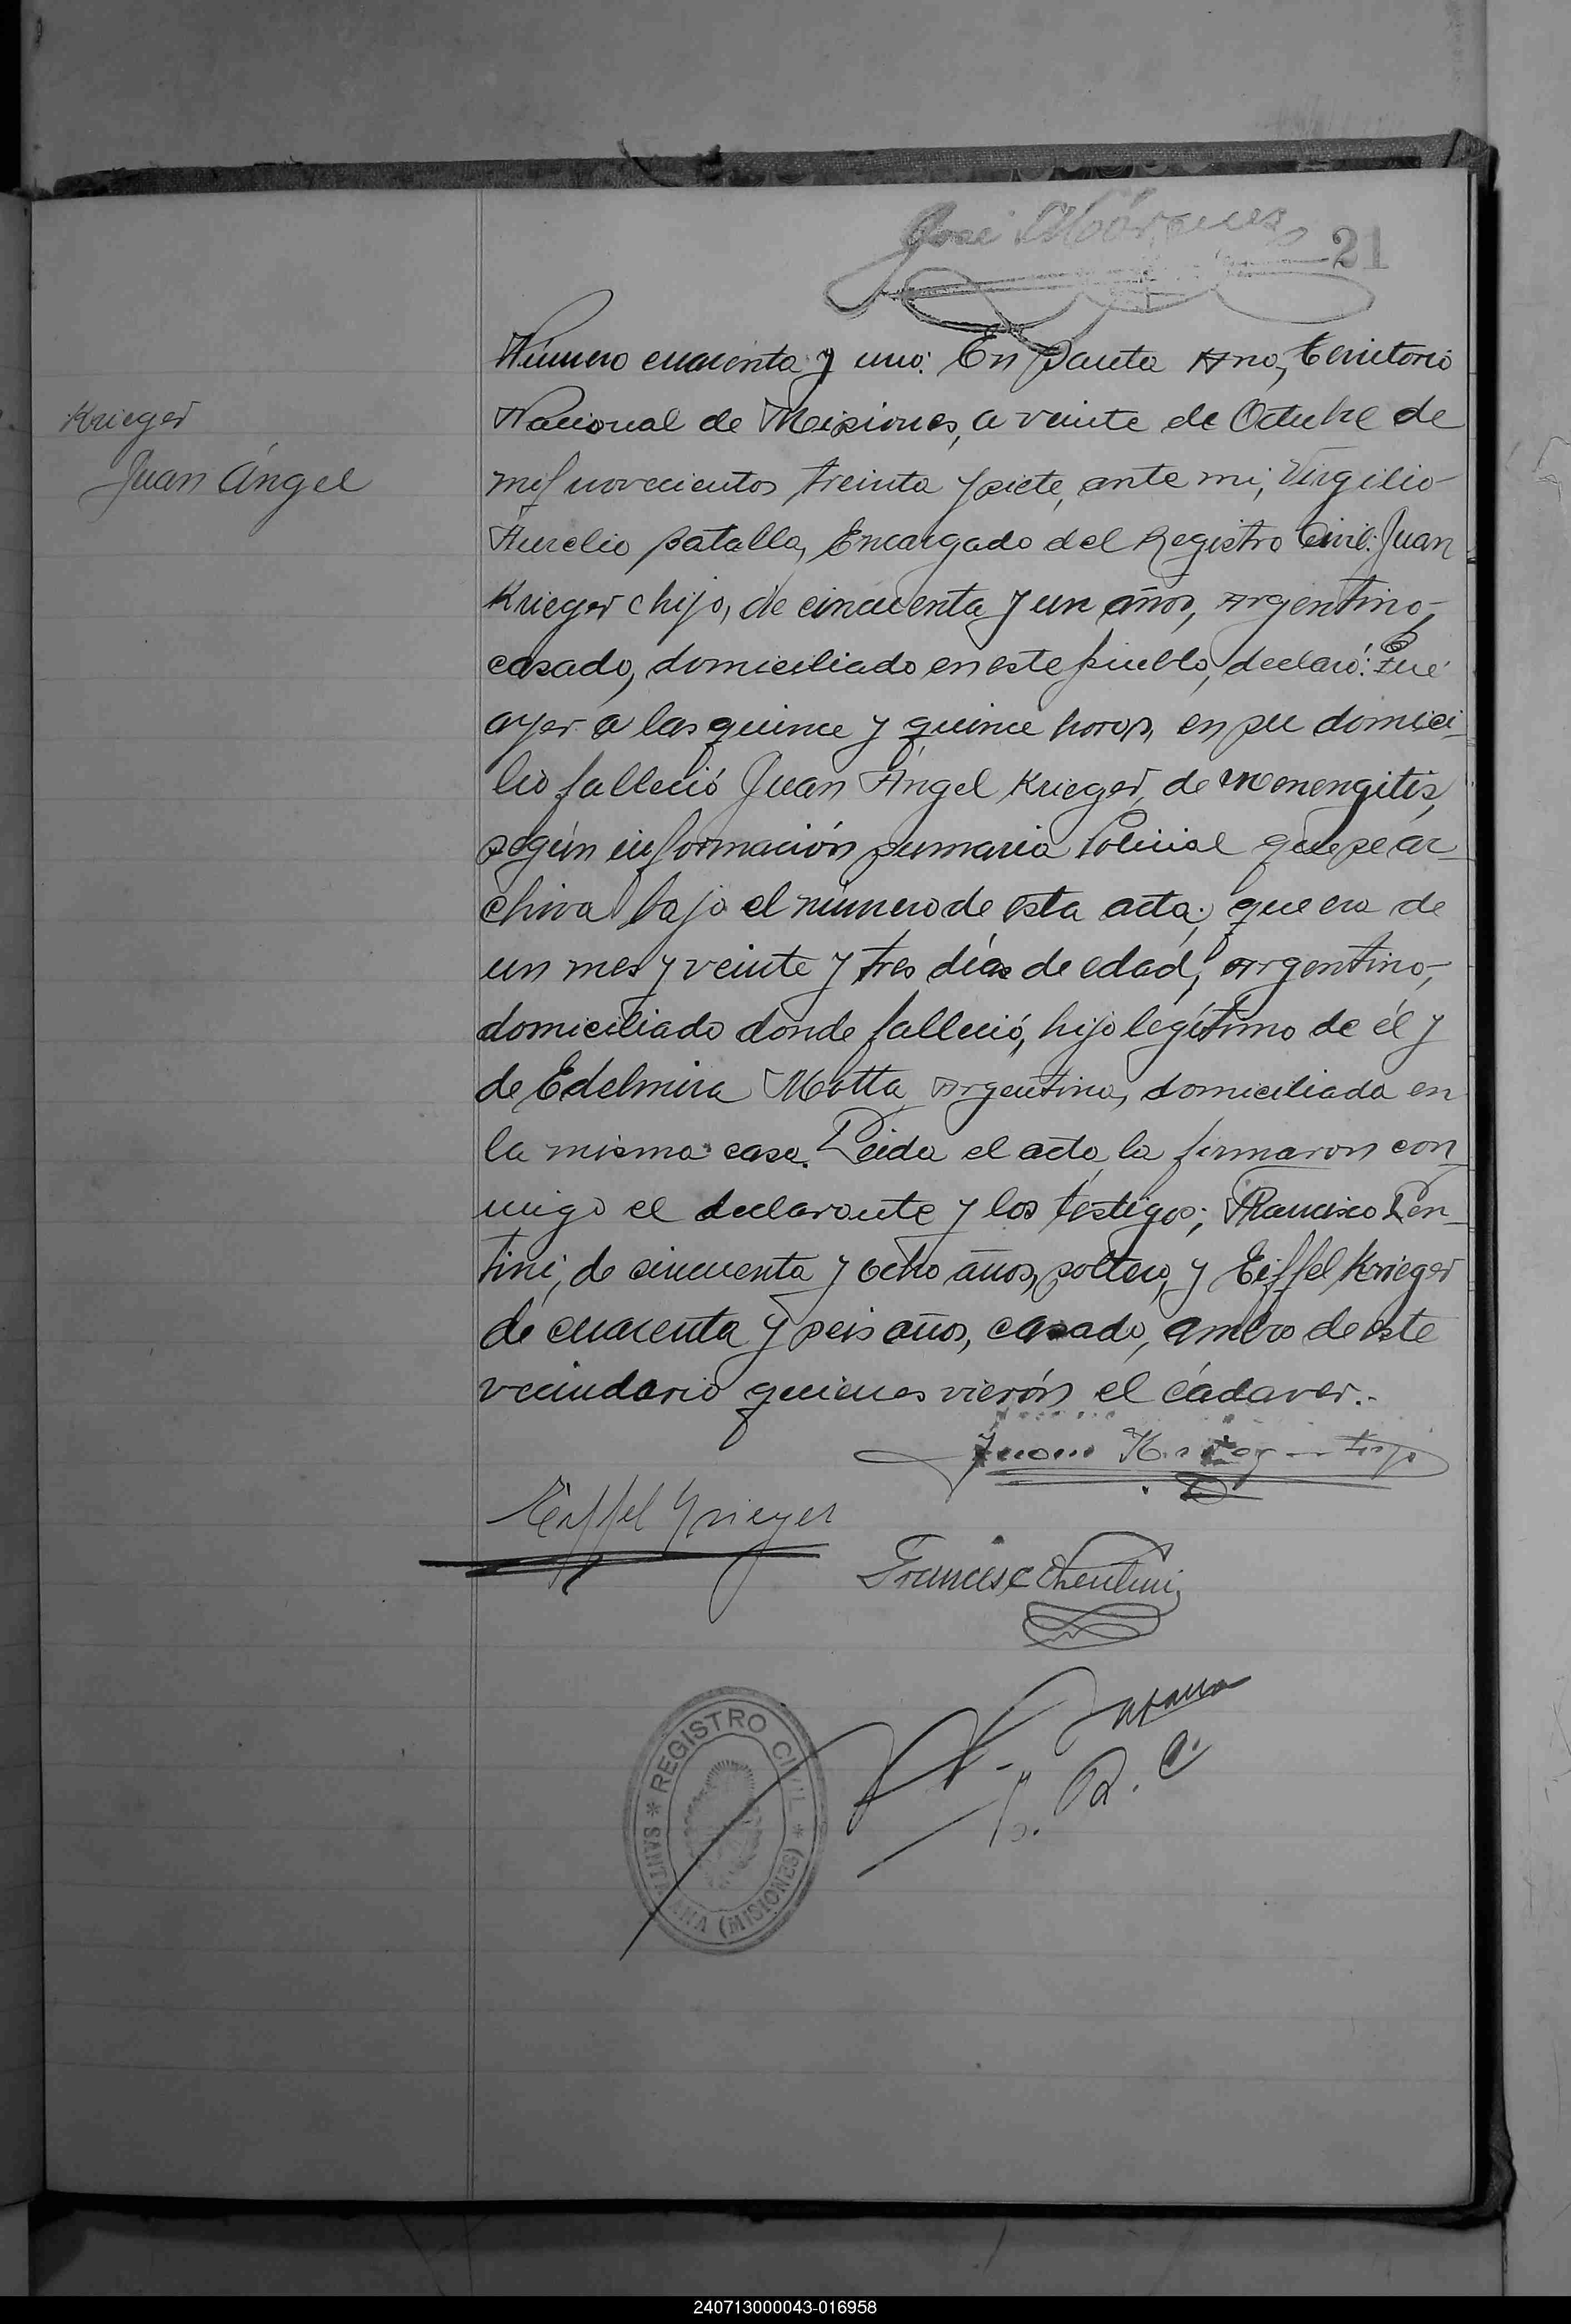 José
21
Krieger
Juan Ángel
Número cuarenta y uno: En Santa Ana, territorio
Nacional de Misiones, a veinte de Octubre de
mil novecientos treinta y siete, ante mi, Virgilio
Aurelio Batalla, Encargado del Registro Civil: Juan
Krieger hijo, de cincuenta y un años, Argentino,
casado, domiciliado en este pueblo, declaró: Que
ayer a las quince y quince horas, en su domici-
lio falleció Juan Ángel Krieger, de menengitis,
según información sumaria Policial que se ar-
chiva bajo el número de esta acta; que era de
un mes y veinte y tres días de edad, Argentino,
domiciliado donde falleció, hijo legítimo de él y
de Edelmira Motta, Argentina, domiciliada en
la misma casa. Leida el acta, la firmaron con-
migo el declarante y los testigos; Francisco
tini, de cincuenta y ocho años, soltero, y Eiffel Krieger
de cuarenta y seis años, casado, ambos de este
vecindario quienes vierón el cádaver.-
Juan Krieger hijo
Eiffel Krieger
Francisc
E. R. C.
REGISTRO CIVIL
SANTA ANA (MISIONES)
240713000043-016958